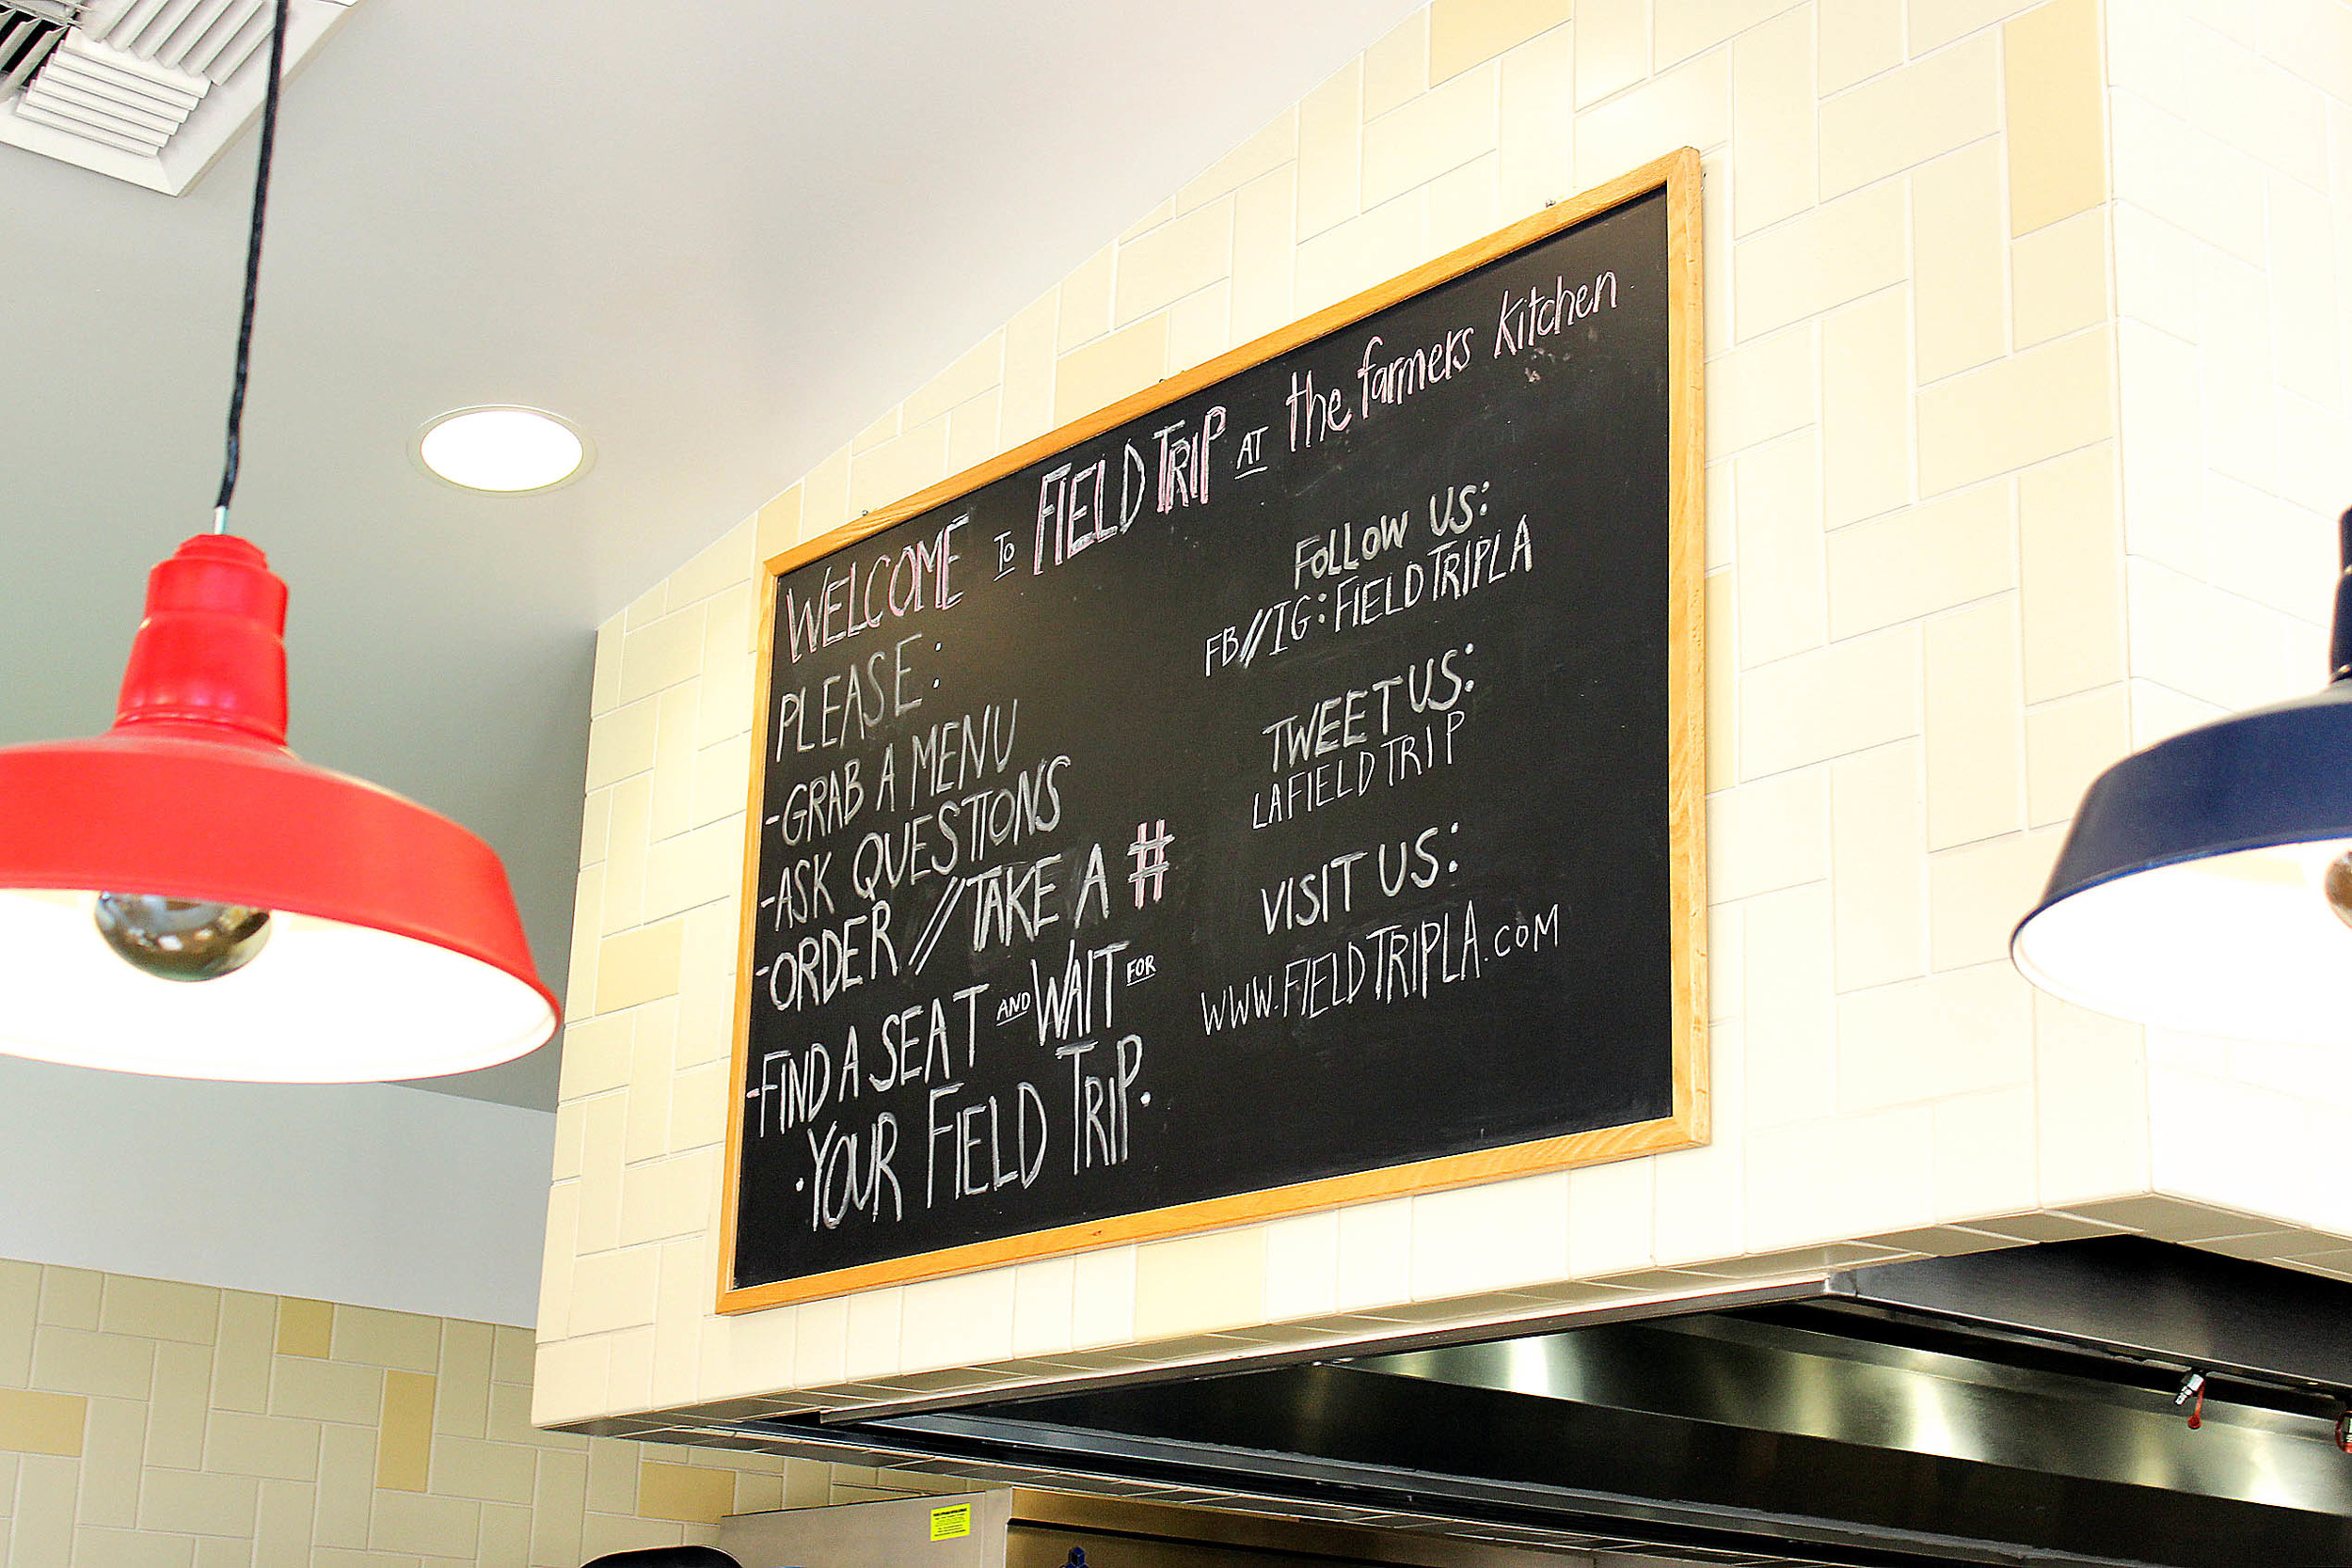 WELCOME TO FIELD TRIP AT the farmers Kitchen
PLEASE:
-GRAB A MENU
-ASK QUESTIONS
-ORDER // TAKE A #
-FIND A SEAT AND WAIT FOR
·YOUR FIELD TRIP.
FOLLOW US:
FB//IG: FIELDTRIPLA
TWEET US:
LAFIELDTRIP
VISIT US:
WWW.FIELDTRIPLA.COM